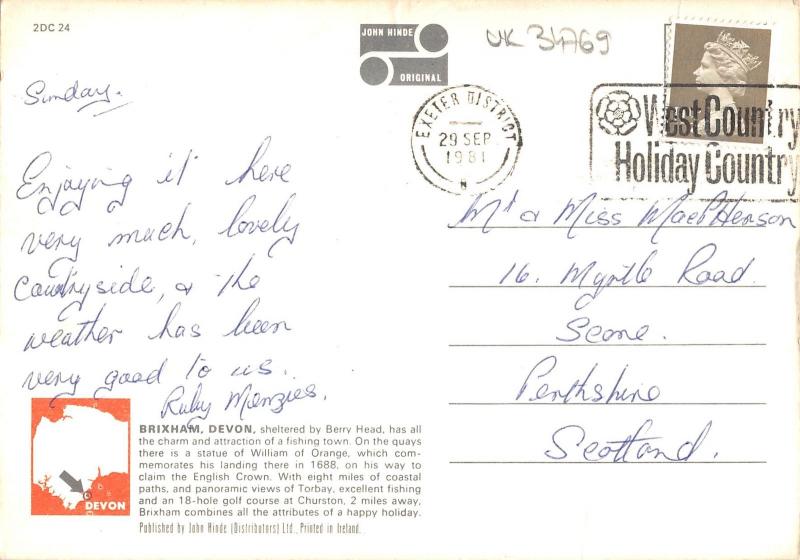 2DC 24
JOHN HINDE
ORIGINAL
UK 34769
EXETER DISTRICT
29 SEP
1981
N
West Country
Holiday Country
Sunday.
Enjoying it here
very much, lovely
countryside, & the
weather has been
very good to us.
Ruby Menzies.
Mr & Miss MacPherson
16. Myrtle Road.
Scone.
Perthshire
Scotland.
DEVON
BRIXHAM, DEVON, sheltered by Berry Head, has all
the charm and attraction of a fishing town. On the quays
there is a statue of William of Orange, which com-
memorates his landing there in 1688, on his way to
claim the English Crown. With eight miles of coastal
paths, and panoramic views of Torbay, excellent fishing
and an 18-hole golf course at Churston, 2 miles away,
Brixham combines all the attributes of a happy holiday.
Published by John Hinde (Distributors) Ltd., Printed in Ireland.